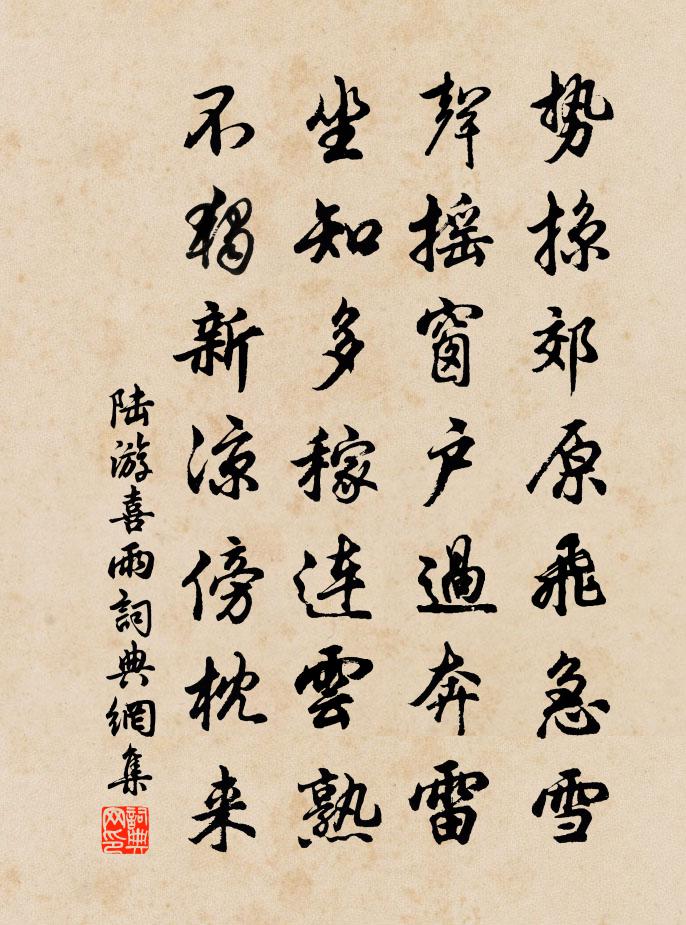 势掠郊原飛急雪
聲摇窗户過奔雷
坐知多稼連雲熟
不獨新涼傍枕来
陆游喜雨詞典網集
詞典网印